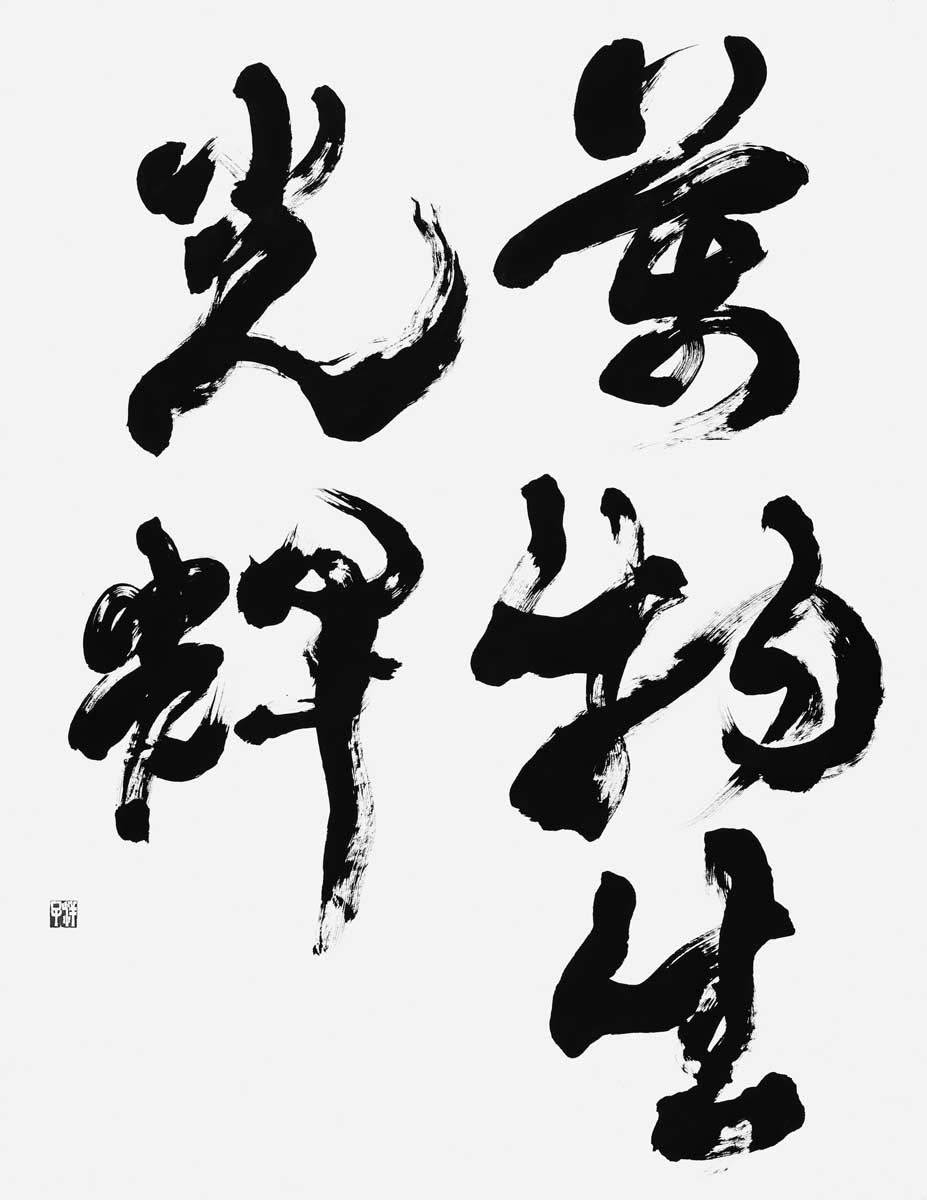 萬物生
光輝